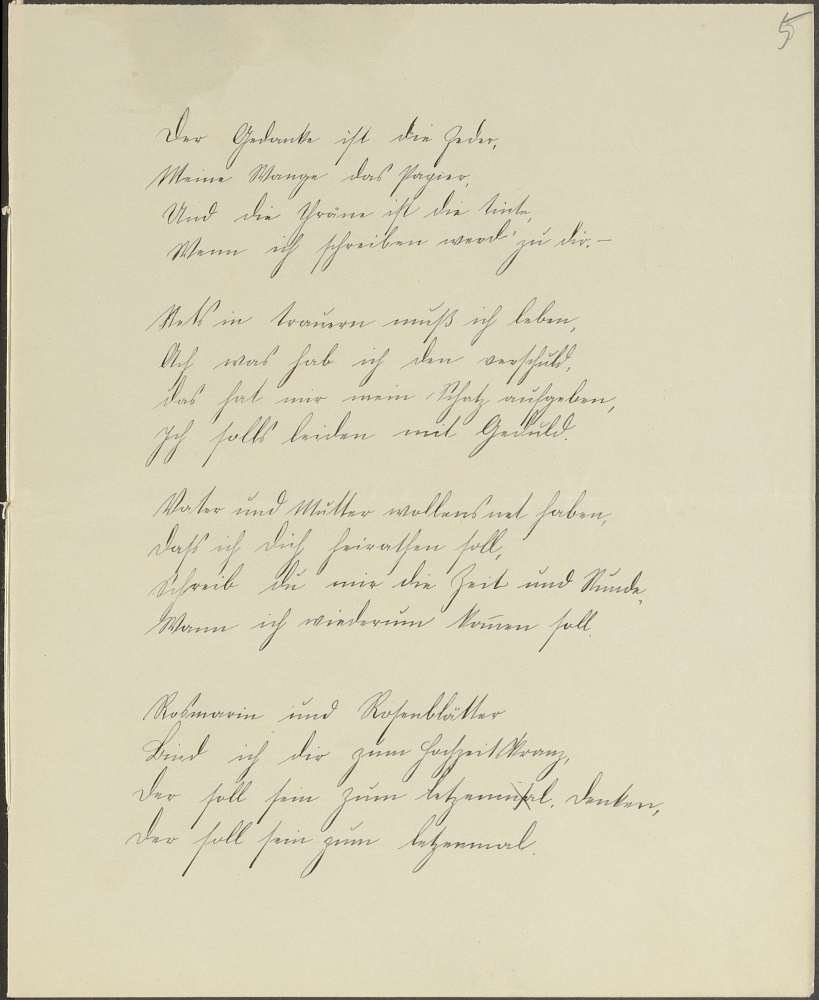 5
Der Gedanke ist die Feder,
Meine Wange das Papier,
Und die Thräne ist die Tinte,
Wenn ich schreiben werd' zu dir. –
Stets in trauern muß ich leben,
Ach was hab ich den verschuld,
das hat mir mein Schatz aufgeben,
Ich solls leiden mit Geduld.
Vater und Mutter wollens net haben,
dass ich dich heirathen soll,
Schreib du mir die Zeit und Stunde,
Wann ich wiederum kom̄en soll.
Rosmarin und Rosenblätter
Bind ich dir zum Hochzeitkranz,
der soll sein zum letzenmal. denken,
der soll sein zum letzenmal.